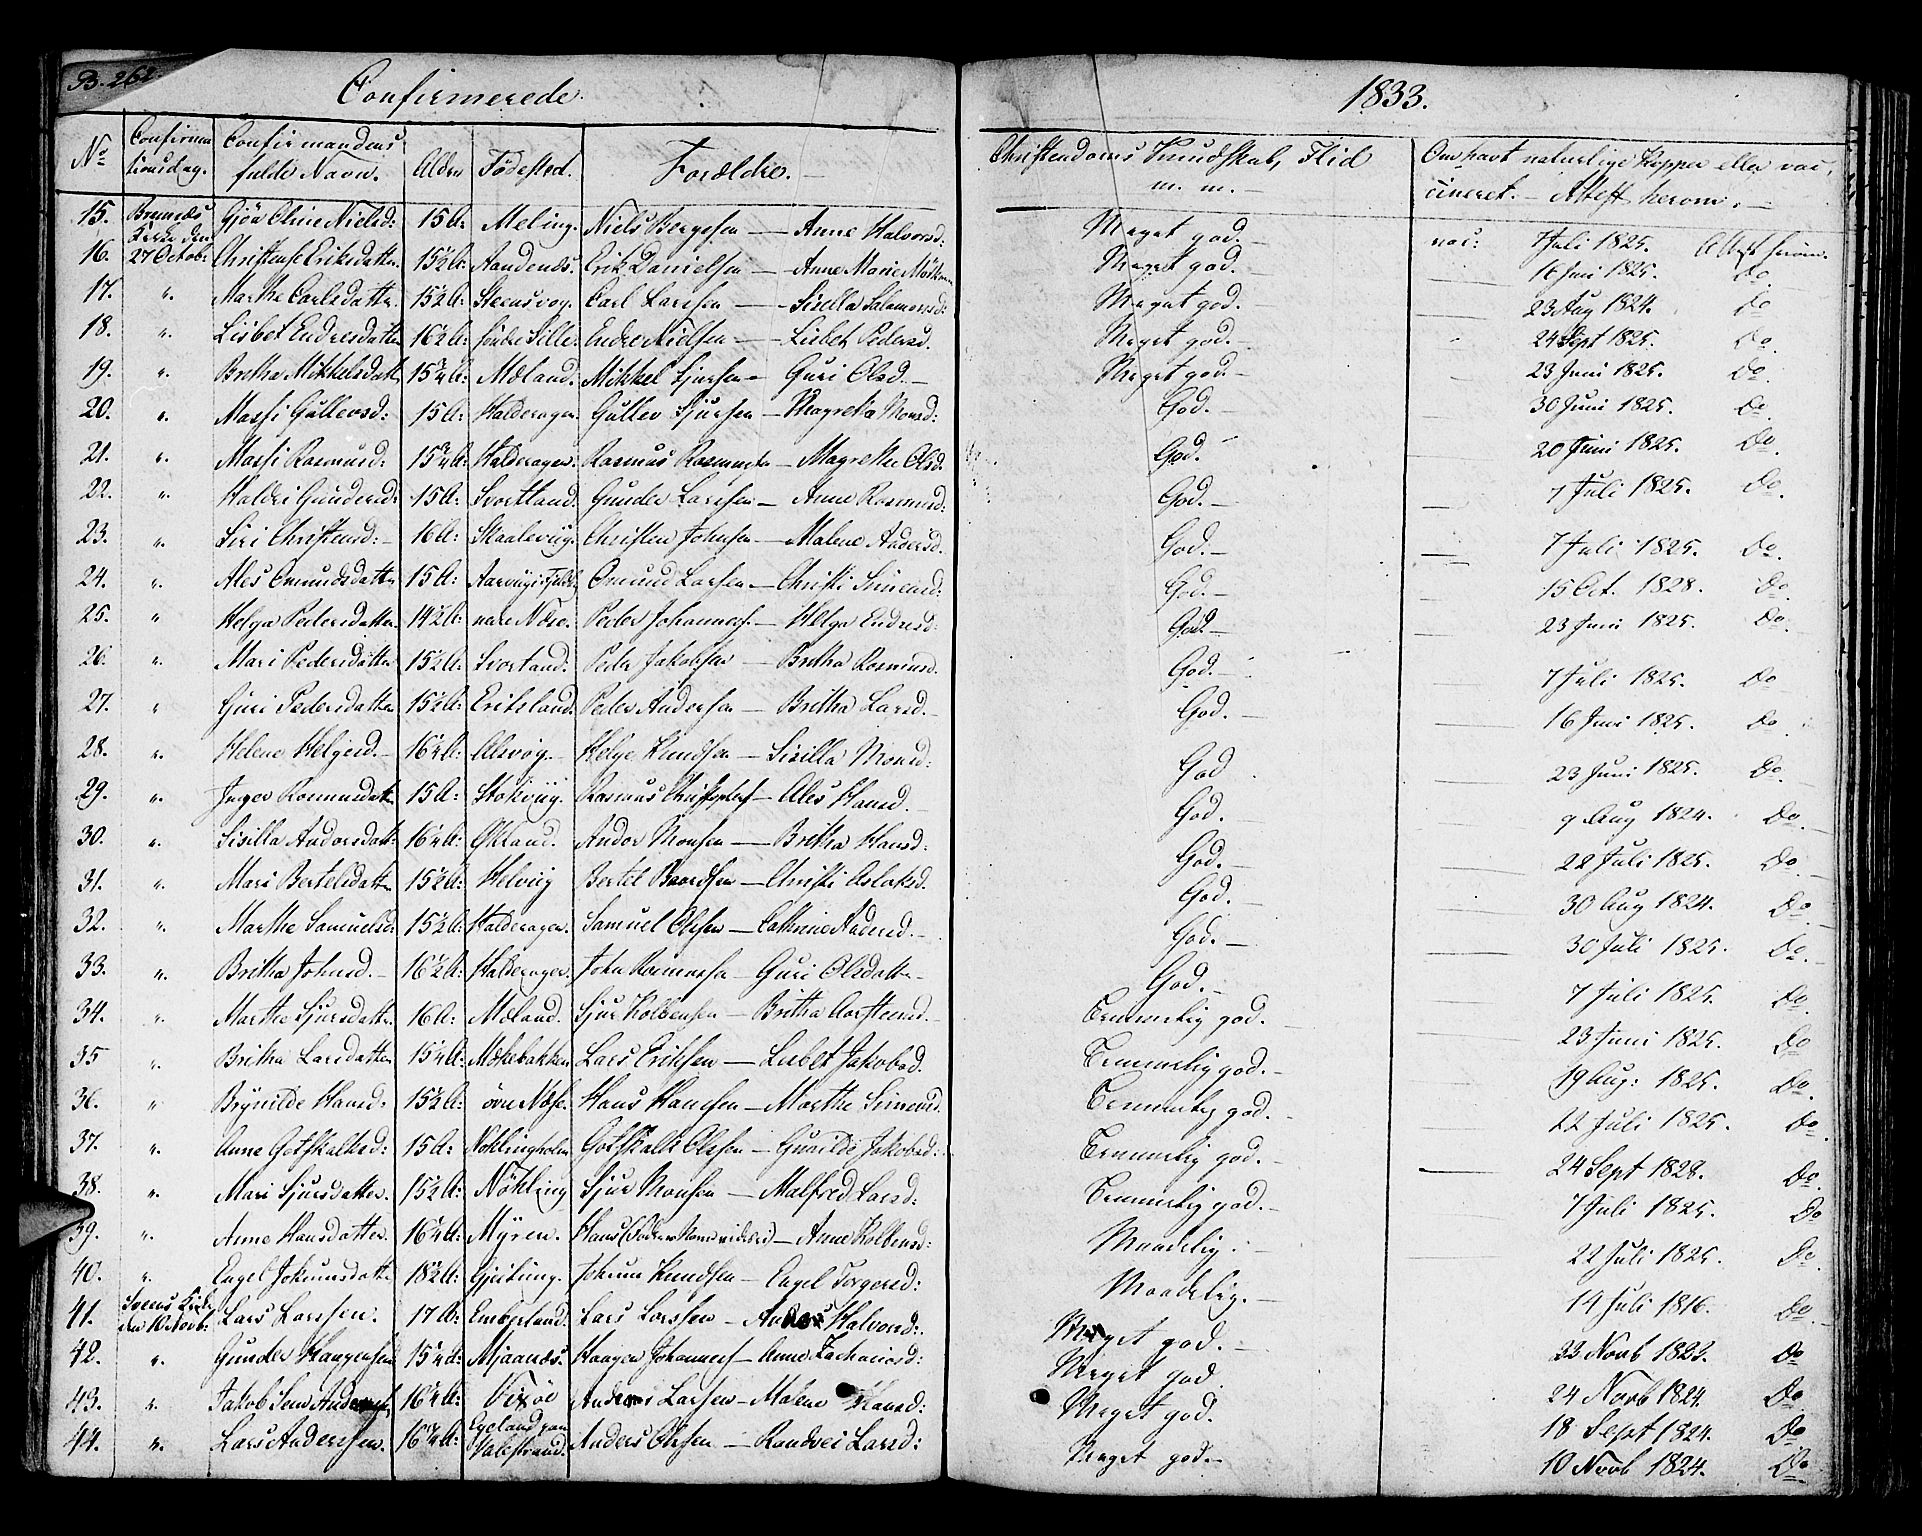 B. 262.
Confirmerede.
1833.
No Confirmationsdag. Confirmandens fulde Navn. Alder Fødested. Forældre. — Christendoms Kundskab, Flid m. m. — Om havt naturlige Kopper eller vaccineret. — Attest herom. —
15. Bremnæs Kirke den 27 Octobr: Gjøa Oline Nielsd: 15 A: Meling. Niels Bergesen — Anne Halvorsd: Meget god. — vac: 7 Juli 1825. Attest herom.
16. Christense Eriksdatter. 15½ A: Aandenæs. Erik Danielsen — Anne Marie Meget god. — 16 Juni 1825. Do
17. " Marthe Carlsdatter. 15½ A: Steensvog. Carl Larssen — Sisella Salamonsd: Meget god. — 23 Aug 1824. Do
18. " Lisbet Endresdatter 16½ A: søndre Sille. Endre Nielsen — Lisbet Pedersd. Meget god. — 24 Sept 1825. Do
19. " Britha Mikkelsdatt. 15¾ A: Mæland. Mikkel Sjursen — Guri Olsd. — Meget god. — 23 Juni 1825. Do
20. " Massi Gullevsd: 15 A: Halderager. Gullev Sjursen — Magretha Monsd: God. — 30 Juni 1825. Do
21. " Massi Rasmusd: 15¾ A: Halderager. Rasmus Rasmussen — Magrethe Olsd. God. 20 Juni 1825. Do
22. " Haldri Gundersd: 15 A: Svortland. Gunder Larssen — Anne Rasmusd: God. — 7 Juli 1825. Do
23. " Siri Christensd: — 16 A: Staalevig. Christen Johnsen — Malene Andersd. God. — 7 Juli 1825. Do
24. " Ales Omundsdatter 15 A: Omund Larsen — Christi Simensd: God. — 15 Oct. 1828. Do
25. " Helga Pedersdatter. 14½ A: nere Næse. Peder Johanness. — Helga Endresd: God. — 23 Juni 1825. Do
26. " Mari Pedersdatter 15½ A: Svortland: Peder Jakobsen — Britha Rasmusd. God. — 7 Juli 1825. Do
27. " Guri Pedersdatter 15½ A: Eriksland. Peder Andersen — Britha Larsd. God. — 16 Juni 1825. Do
28. " Helene Helgesd. — 16¼ A: Alsvog. — Helge Knudsen — Sisilla Monsd: God 23 Juni 1825. Do
29. " Inger Rasmusdatter 15 A: Stokviig. Rasmus Christophers — Ales Hansd. God. 9 Aug 1824. Do
30. " Sisilla Andorsdatt: 16¼ A: Økland. Andor Monsen — Britha Hansd: God. — 22 Juli 1825. Do
31. " Mari Bertelsdatter 15½ A: Helviig Bertel Baardsen — Christi Aslaksd. God. — 30 Aug 1824. Do
32. " Marthe Samuelsd: 15½ A: Halderager. Samuel Olssen — Cathrine Andersd. — God. — 30 Juli 1825. Do
33. " Britha Johnsd. — 16½ A: Halderager. John Rasmussen — Guri Olsdatter — God. — 7 Juli 1825. Do
34. " Marthe Sjursdatter. 16 A: Mæland. Sjur Kolbensen — Britha Aarstensd. Temmelig god. — 23 Juni 1825. Do
35 " Britha Larsdatter 15¼ A: Møkebakken Lars Eriksen — Lisbet Jakobsd. Temmelig god. — 19 Aug: 1825. Do
36. " Brynilde Hansd: 15½ A: øvre Næse. Hans Hansen — Marthe Simensd. Temmelig god. — 22 Juli 1825. Do
37. " Anne Gotskalksd: 15 A: Nøklingholm Gotskalk Olssen — Gunilde Jakobsd: Temmelig god. — 24 Sept 1828. Do
38. " Mari Sjursdatter. 15½ A: Nøkling Sjur Monsen — Malfred Larsd: Temmelig god. — 7 Juli 1825. Do
39. " Anne Hansdatter. 16¼ A: Myren. Hans — Anne Kolbensd: Maadelig. — 22 Juli 1825. Do
40. " Engel Johunsdatter 18½ A: Gjeitung. Johun Knudsen — Engel Torgersd: Maadelig. — 14 Juli 1816. Do
41. Svens Kirke den 10 Novb: Lars Larssen. 17 A: Emberland. Lars Larssen — Halvorsd: Meget god. — 22 Novb 1823. Do
42. " Gunder Haagensen 15¼ A: Mjaanæs. Haagen Johanness — Anne Zachariasd: Meget god. 24 Novb 1824. Do
43. " Jakob Sem 16¼ A: Fixøe Anders Larsen — Malene Hansd: Meget god. 18 Sept 1824. Do
44. " Lars Anderssen. 16¼ A: Egeland paa Valestrand. Anders Olssen — Randvei Larsd: Meget god. — 10 Novb 1824. Do